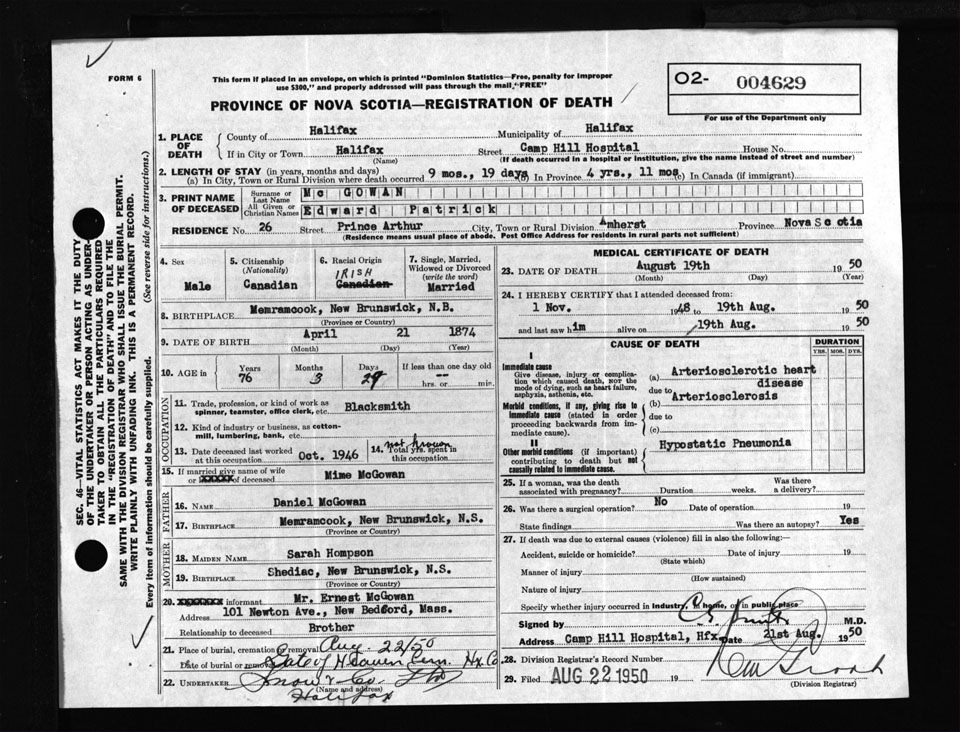 FORM 6
This form if placed in an envelope, on which is printed "Dominion Statistics—Free, penalty for improper
use $300," and properly addressed will pass through the mail, "FREE"
PROVINCE OF NOVA SCOTIA—REGISTRATION OF DEATH
O2- 004629
For use of the Department only
1. PLACE OF DEATH
County of Halifax Municipality of Halifax
If in City or Town Halifax Street Camp Hill Hospital House No.
(Name) (If death occurred in a hospital or institution, give the name instead of street and number)
2. LENGTH OF STAY (in years, months and days)
(a) In City, Town or Rural Division where death occurred 9 mos., 19 days (b) In Province 4 yrs., 11 mos (c) In Canada (if immigrant)
3. PRINT NAME OF DECEASED
Surname or Last Name Mc GOWAN
All Given or Christian Names Edward Patrick
RESIDENCE No. 26 Street Prince Arthur City, Town or Rural Division Amherst Province Nova Scotia
(Residence means usual place of abode. Post Office Address for residents in rural parts not sufficient)
4. Sex Male
5. Citizenship (Nationality) Canadian
6. Racial Origin IRISH Canadian
7. Single, Married, Widowed or Divorced (write the word) Married
8. BIRTHPLACE Memramcook, New Brunswick, N.B.
(Province or Country)
9. DATE OF BIRTH April 21 1874
(Month) (Day) (Year)
10. AGE in Years 76 Months 3 Days 29 If less than one day old
hrs. or min.
OCCUPATION
11. Trade, profession, or kind of work as spinner, teamster, office clerk, etc. Blacksmith
12. Kind of industry or business, as cotton-mill, lumbering, bank, etc.
13. Date deceased last worked at this occupation Oct. 1946
14. Total yrs. spent in this occupation not known
15. If married give name of wife or XXXXX of deceased Mime McGowan
FATHER
16. NAME Daniel McGowan
17. BIRTHPLACE Memramcook, New Brunswick, N.S.
(Province or Country)
MOTHER
18. MAIDEN NAME Sarah Hompson
19. BIRTHPLACE Shediac, New Brunswick, N.S.
(Province or Country)
20. XXXXXXX informant Mr. Ernest McGowan
Address 101 Newton Ave., New Bedford, Mass.
Relationship to deceased Brother
21. Place of burial, cremation or removal Aug. 22/50
Date of burial or removal Gate of Heaven Cem. Hx. Co
22. UNDERTAKER Snow & Co. Ltd
(Name and address)
Halifax
MEDICAL CERTIFICATE OF DEATH
23. DATE OF DEATH August 19th 1950
(Month) (Day) (Year)
24. I HEREBY CERTIFY that I attended deceased from:
1 Nov. 1948 to 19th Aug. 1950
and last saw him alive on 19th Aug. 1950
CAUSE OF DEATH
DURATION
YRS. MOS. DYS.
I
Immediate cause
Give disease, injury or complication which caused death, NOT the mode of dying, such as heart failure, asphyxia, asthenia, etc.
(a) Arteriosclerotic heart disease
due to
Morbid conditions, if any, giving rise to immediate cause (stated in order proceeding backwards from immediate cause).
(b) Arteriosclerosis
due to
(c)
II
Other morbid conditions (if important) contributing to death but not causally related to immediate cause.
Hypostatic Pneumonia
25. If a woman, was the death associated with pregnancy? Duration weeks. Was there a delivery?
26. Was there a surgical operation? No Date of operation 19
State findings Was there an autopsy? Yes
27. If death was due to external causes (violence) fill in also the following:—
Accident, suicide or homicide? Date of injury 19
(State which)
Manner of injury
(How sustained)
Nature of injury
Specify whether injury occurred in industry, in home, or in public place
Signed by M.D.
Address Camp Hill Hospital, Hfx. Date 21st Aug. 1950
28. Division Registrar's Record Number
29. Filed AUG 22 1950 19
(Division Registrar)
SEC. 46—VITAL STATISTICS ACT MAKES IT THE DUTY
OF THE UNDERTAKER OR PERSON ACTING AS UNDER-
TAKER TO OBTAIN ALL THE PARTICULARS REQUIRED
IN THE "REGISTRATION OF DEATH" AND TO FILE THE
SAME WITH THE DIVISION REGISTRAR WHO SHALL ISSUE THE BURIAL PERMIT.
WRITE PLAINLY WITH UNFADING INK. THIS IS A PERMANENT RECORD.
Every item of information should be carefully supplied. (See reverse side for instructions.)